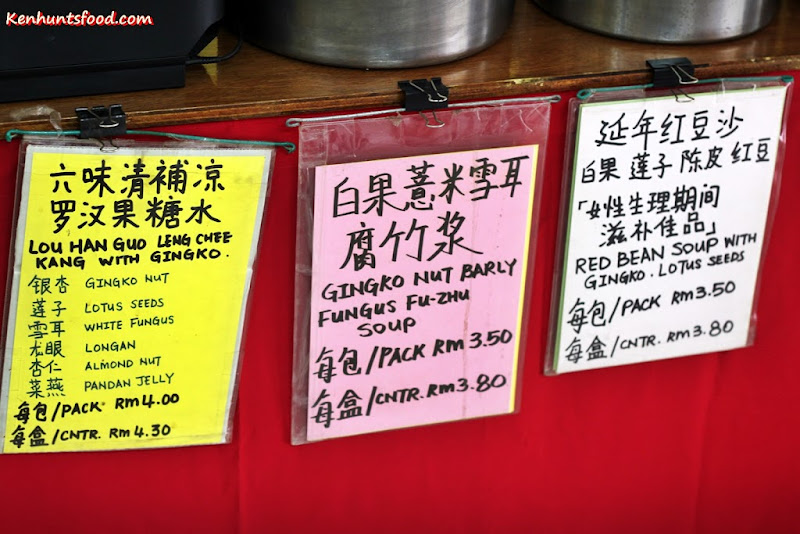 Kenhuntsfood.com
六味清補凉
罗汉果糖水
LOU HAN GUO LENG CHEE
KANG WITH GINGKO.
银杏 GINGKO NUT
莲子 LOTUS SEEDS
雪耳 WHITE FUNGUS
龙眼 LONGAN
杏仁 ALMOND NUT
菜燕 PANDAN JELLY
每包/PACK RM 4.00
每盒/CNTR. RM 4.30
白果薏米雪耳
腐竹浆
GINGKO NUT BARLY
FUNGUS FU-ZHU
SOUP
每包/PACK RM 3.50
每盒/CNTR. RM 3.80
延年红豆沙
白果 莲子 陈皮 红豆
「女性生理期间
滋补佳品」
RED BEAN SOUP WITH
GINGKO. LOTUS SEEDS
每包/PACK RM 3.50
每盒/CNTR. RM 3.80